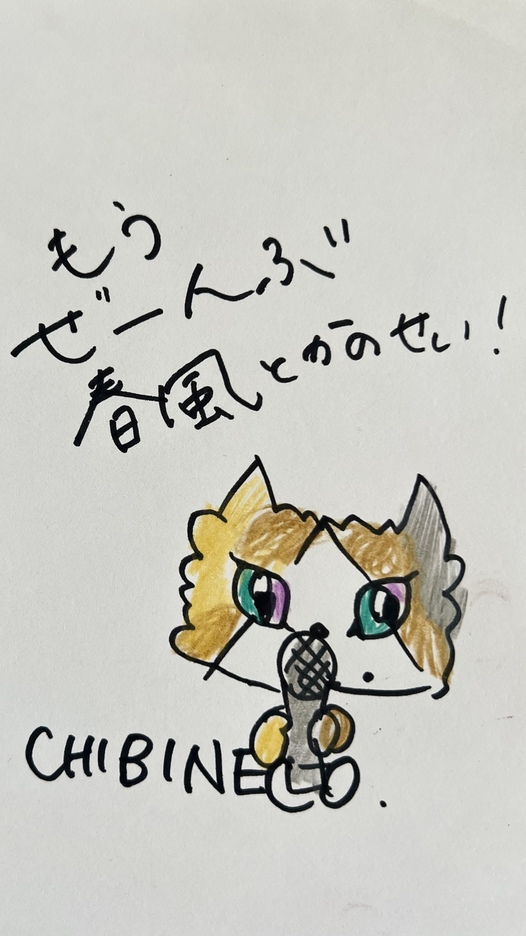 もう
ぜーんぶ
春風とかのせい!
CHIBINECO.